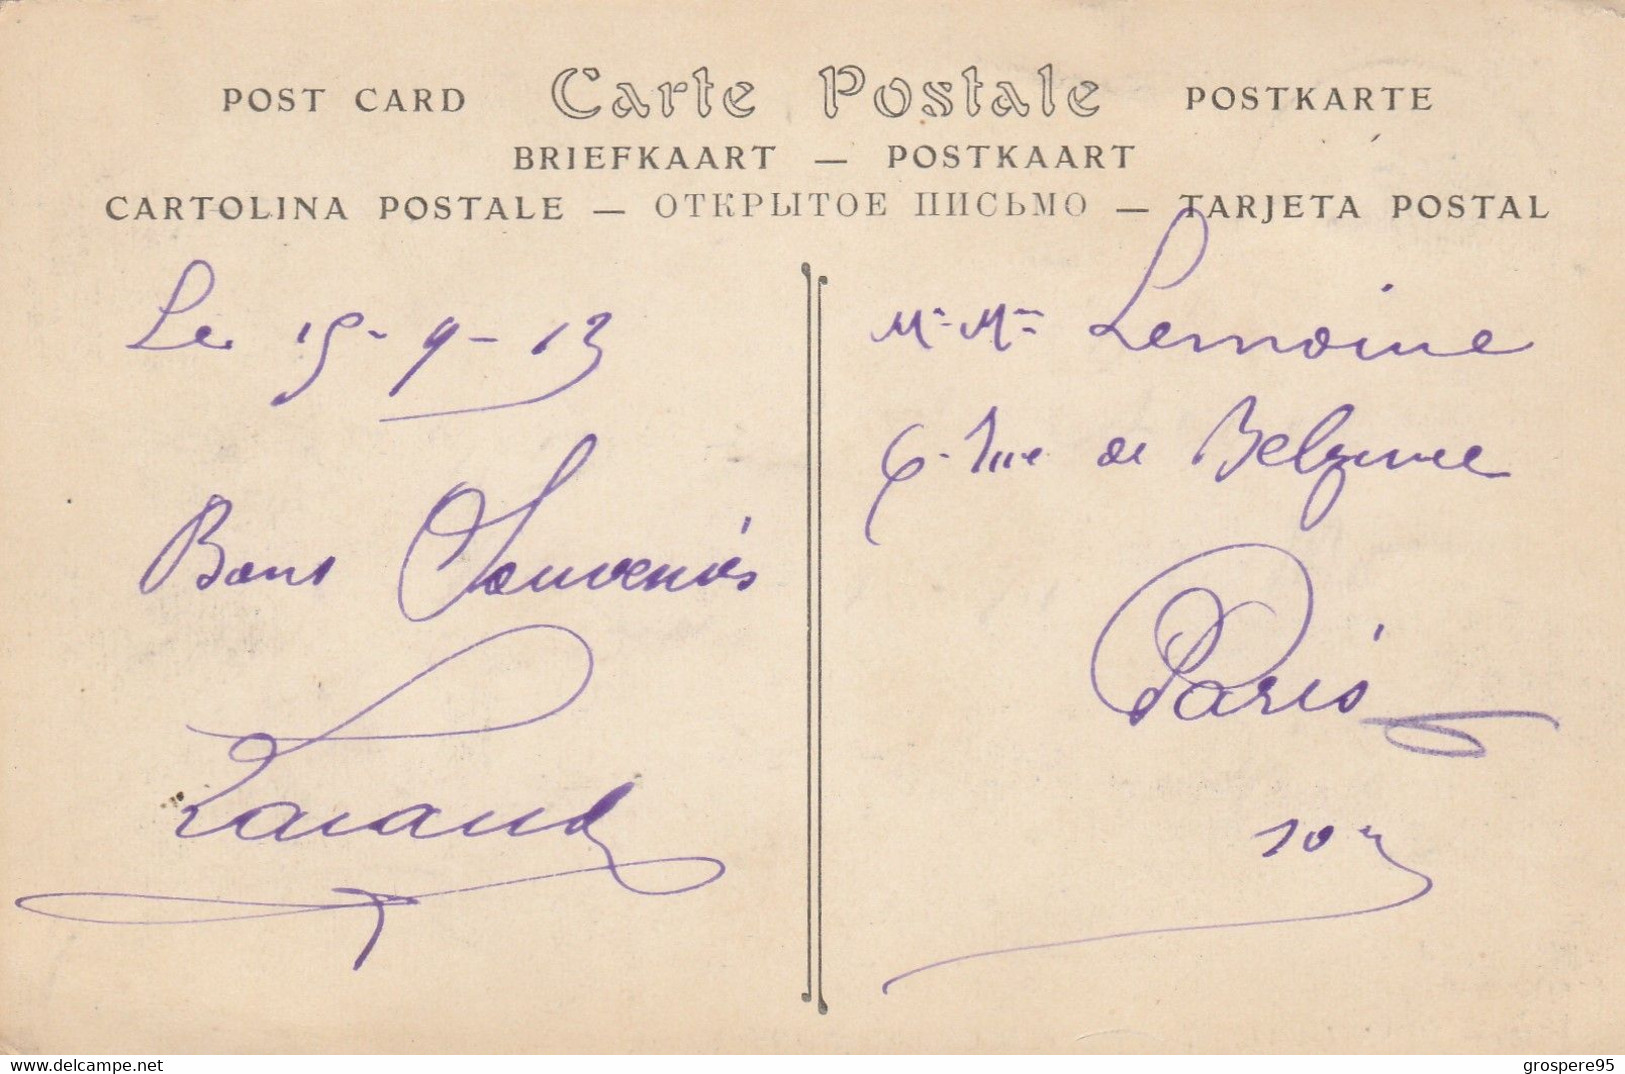 POST CARD Carte Postale POSTKARTE
BRIEFKAART — POSTKAART
CARTOLINA POSTALE — ОТКРЫТОЕ ПИСЬМО — TARJETA POSTAL
Le 15-9-13
Bons Souvenirs
Mr Mme Lemoine
6 rue de Belzunce
Paris
10e
www.delcampe.net
grospere95